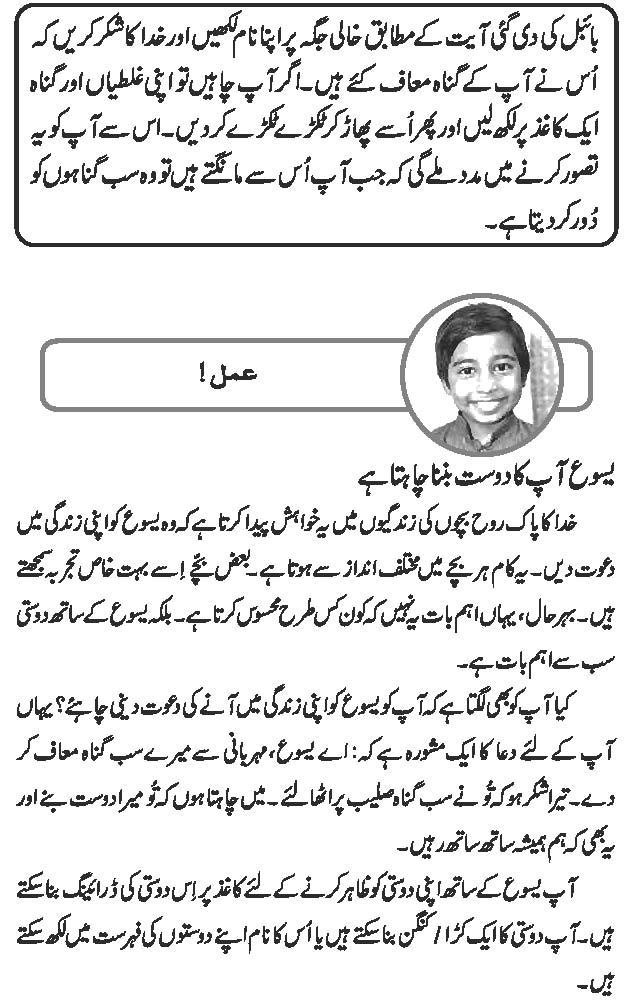 بائبل کی دی گئی آیت کے مطابق خالی جگہ پر اپنا نام لکھیں اور خدا کا شکر کریں کہ
اُس نے آپ کے گناہ معاف کئے ہیں۔ اگر آپ چاہیں تو اپنی غلطیاں اور گناہ
ایک کاغذ پر لکھ لیں اور پھر اُسے پھاڑ کر ٹکڑے ٹکڑے کر دیں۔ اس سے آپ کو یہ
تصور کرنے میں مدد ملے گی کہ جب آپ اُس سے مانگتے ہیں تو وہ سب گناہوں کو
دُور کر دیتا ہے۔
عمل!
یسوع آپ کا دوست بننا چاہتا ہے
خدا کا پاک روح بچوں کی زندگیوں میں یہ خواہش پیدا کرتا ہے کہ وہ یسوع کو اپنی زندگی میں
دعوت دیں۔ یہ کام ہر بچے میں مختلف انداز سے ہوتا ہے۔ بعض بچّے اِسے بہت خاص تجربہ سمجھتے
ہیں۔ بہرحال، یہاں اہم بات یہ نہیں کہ کون کس طرح محسوس کرتا ہے۔ بلکہ یسوع کے ساتھ دوستی
سب سے اہم بات ہے۔
کیا آپ کو بھی لگتا ہے کہ آپ کو یسوع کو اپنی زندگی میں آنے کی دعوت دینی چاہئے؟ یہاں
آپ کے لئے دعا کا ایک مشورہ ہے کہ: اے یسوع، مہربانی سے میرے سب گناہ معاف کر
دے۔ تیرا شکر ہو کہ تُو نے سب گناہ صلیب پر اٹھا لئے۔ میں چاہتا ہوں کہ تُو میرا دوست بنے اور
یہ بھی کہ ہم ہمیشہ ساتھ ساتھ رہیں۔
آپ یسوع کے ساتھ اپنی دوستی کو ظاہر کرنے کے لئے کاغذ پر اِس دوستی کی ڈرائینگ بنا سکتے
ہیں۔ آپ دوستی کا ایک کڑا / کنگن بنا سکتے ہیں یا اُس کا نام اپنے دوستوں کی فہرست میں لکھ سکتے
ہیں۔